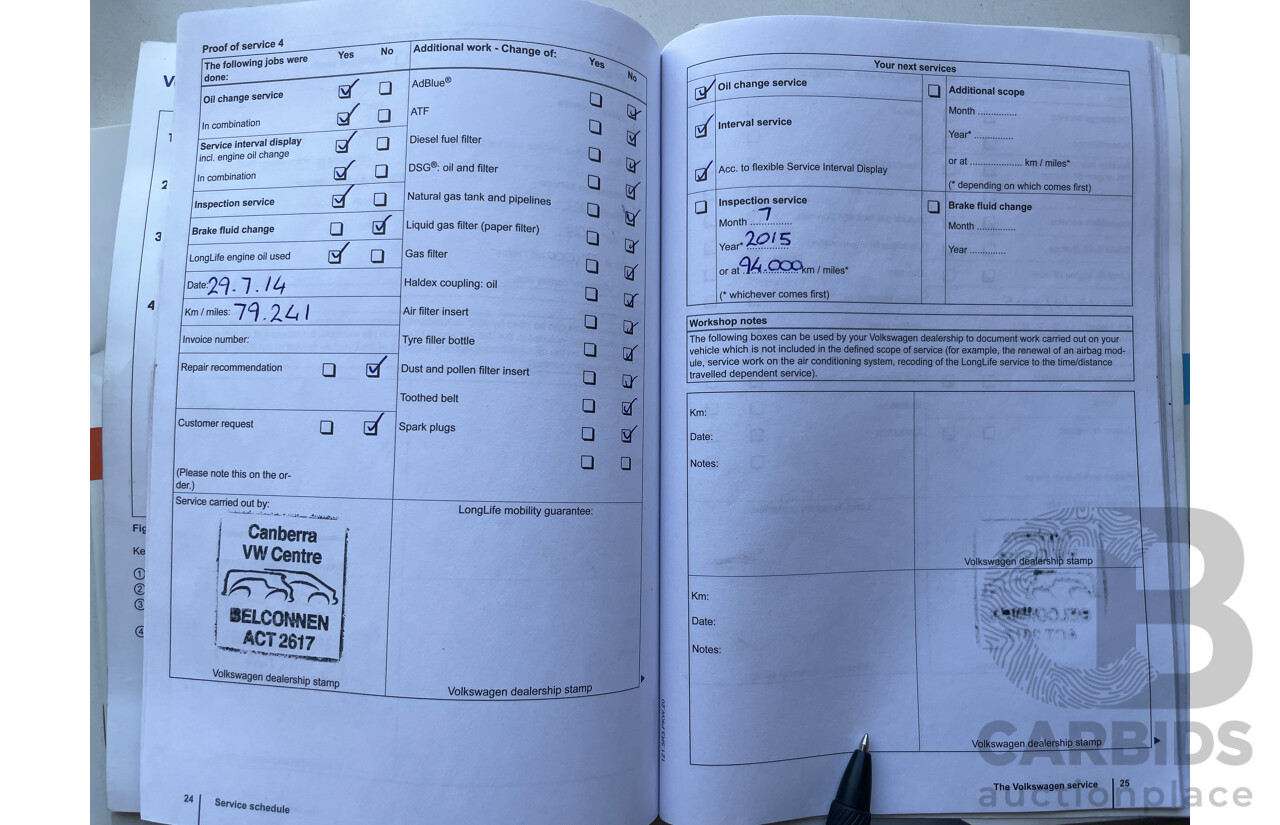 Proof of service 4
The following jobs were done: Yes No
Oil change service
In combination
Service interval display
incl. engine oil change
In combination
Inspection service
Brake fluid change
LongLife engine oil used
Date: 29.7.14
Km / miles: 79.241
Invoice number:
Repair recommendation
Customer request
(Please note this on the or-
der.)
Service carried out by:
Canberra
VW Centre
BELCONNEN
ACT 2617
Volkswagen dealership stamp
Additional work - Change of: Yes No
AdBlue®
ATF
Diesel fuel filter
DSG®: oil and filter
Natural gas tank and pipelines
Liquid gas filter (paper filter)
Gas filter
Haldex coupling: oil
Air filter insert
Tyre filler bottle
Dust and pollen filter insert
Toothed belt
Spark plugs
LongLife mobility guarantee:
Volkswagen dealership stamp
24 Service schedule
Your next services
Oil change service
Interval service
Acc. to flexible Service Interval Display
Inspection service
Month 7
Year* 2015
or at 94.000 km / miles*
(* whichever comes first)
Additional scope
Month ..............
Year* ..............
or at .................... km / miles*
(* depending on which comes first)
Brake fluid change
Month ..............
Year ..............
Workshop notes
The following boxes can be used by your Volkswagen dealership to document work carried out on your
vehicle which is not included in the defined scope of service (for example, the renewal of an airbag mod-
ule, service work on the air conditioning system, recoding of the LongLife service to the time/distance
travelled dependent service).
Km:
Date:
Notes:
Volkswagen dealership stamp
Km:
Date:
Notes:
Volkswagen dealership stamp
The Volkswagen service 25
1
2
3
4
Fig
Ke
1
2
3
4
CARBIDS
auctionplace